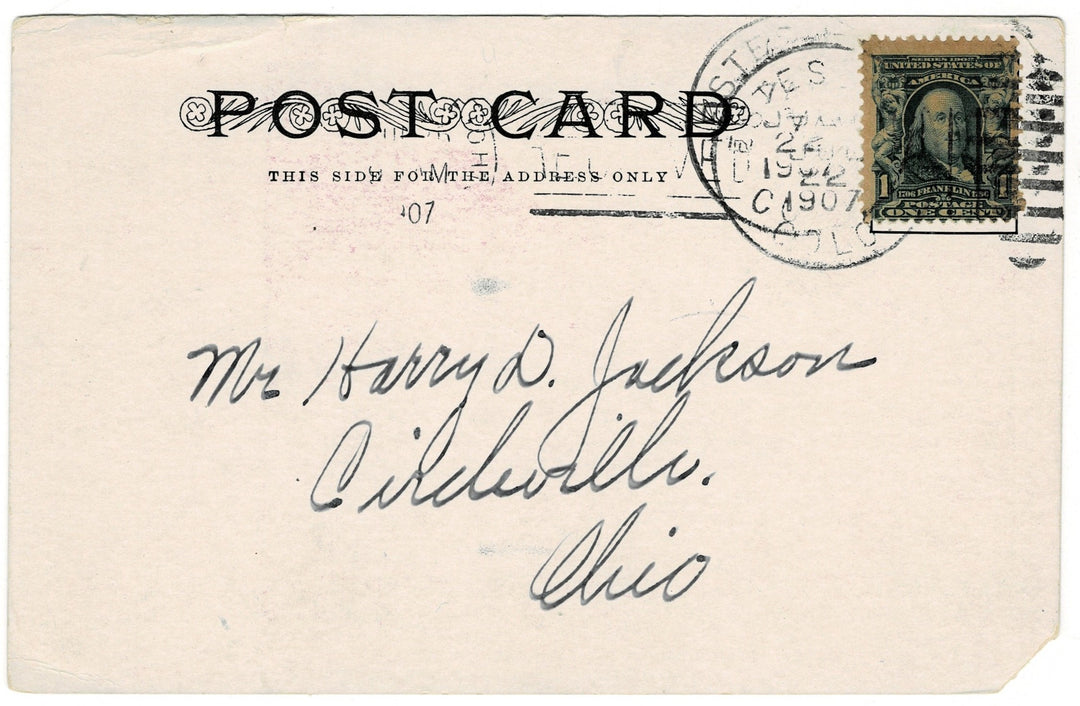 POST CARD
THIS SIDE FOR THE ADDRESS ONLY
M
07
22
1907
COLO
SERIES 1902
UNITED STATES OF
AMERICA
1 FRANKLIN 1
POSTAGE
ONE CENT
Mr Harry D. Jackson
Circleville.
Ohio